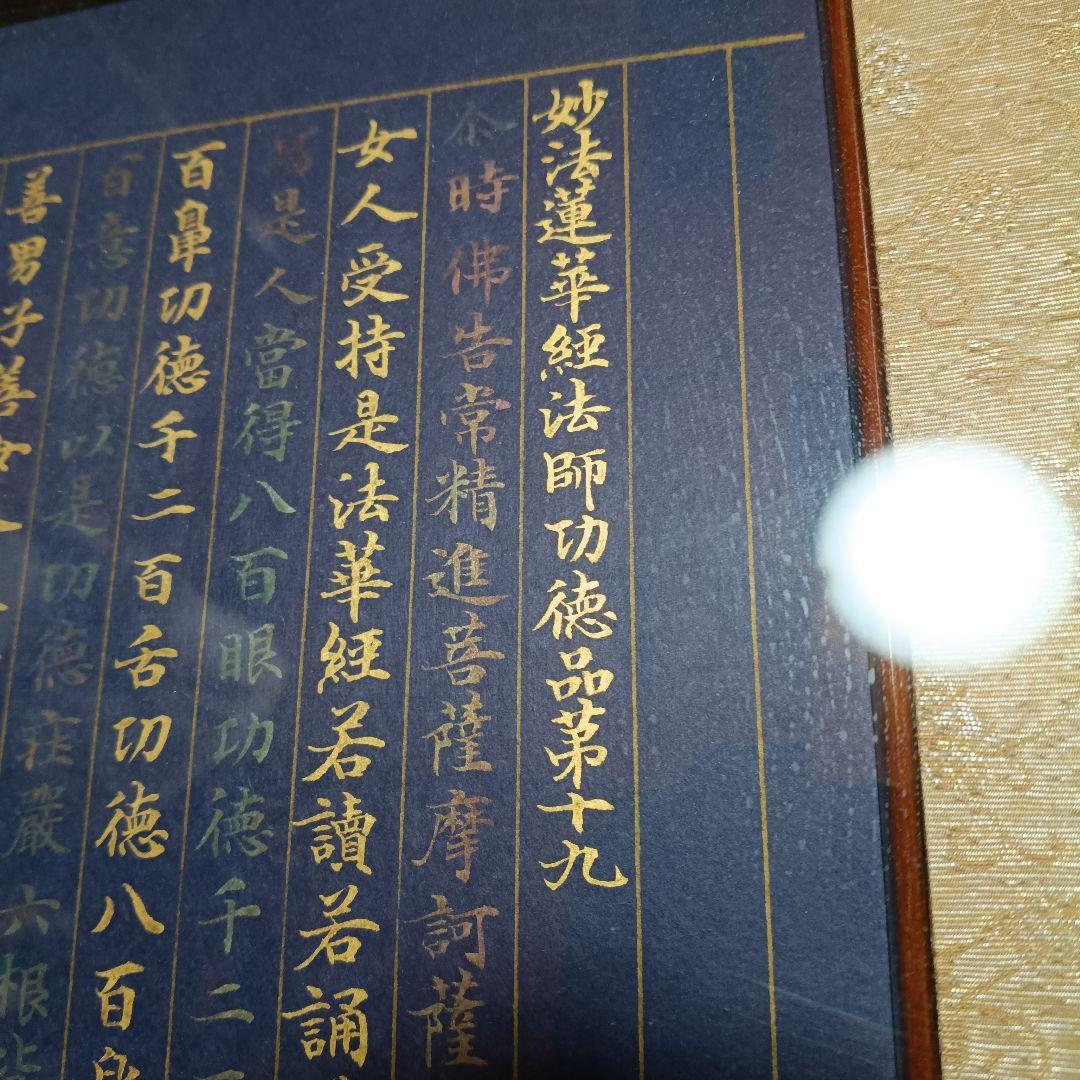 妙法蓮華經法師功徳品第十九
尒時佛告常精進菩薩摩訶薩
女人受持是法華經若讀若誦
是人當得八百眼功徳千二
百鼻功徳千二百舌功徳八百
百意功徳以是功徳莊嚴六根
善男子善女人